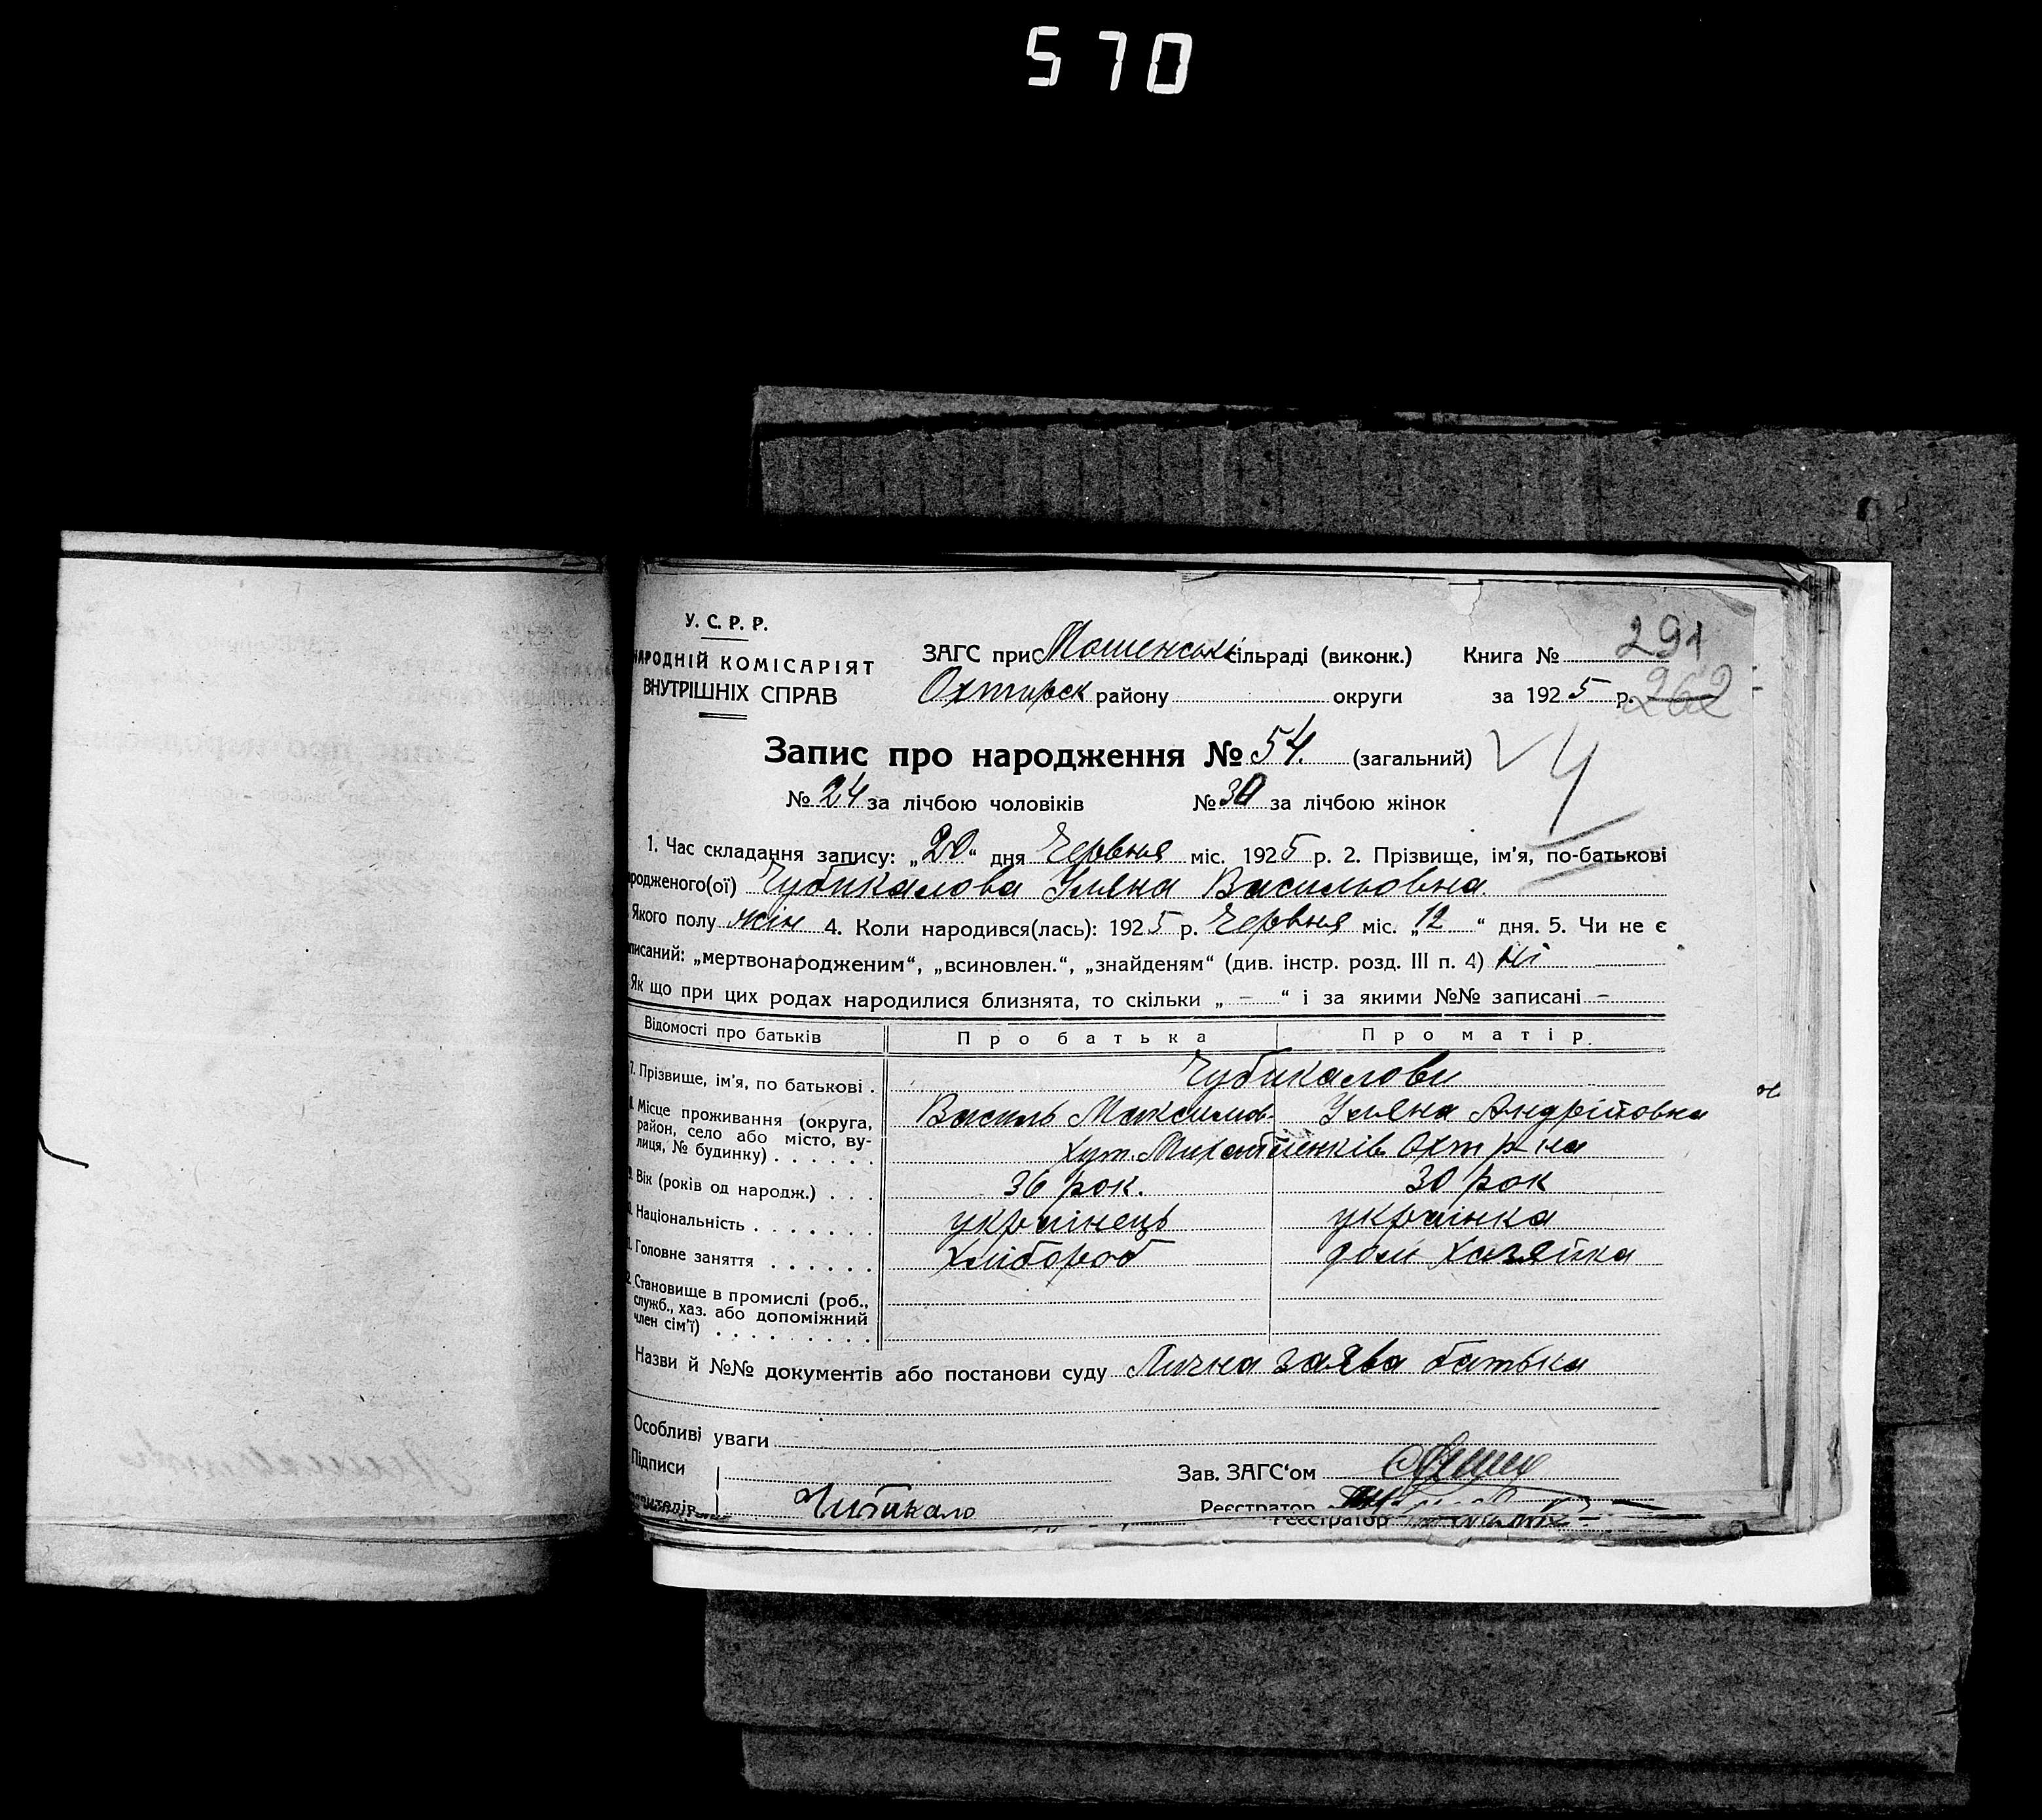 570
У. С. Р. Р.
НАРОДНІЙ КОМІСАРІЯТ
ВНУТРІШНІХ СПРАВ
ЗАГС при Мошенській сільраді (виконк.) Книга № 291
Охтирск району округи за 1925 р. 262
Запис про народження № 54. (загальний) 4
№ 24 за лічбою чоловіків № 30 за лічбою жінок
1. Час складання запису: „20“ дня Червня міс. 1925 р. 2. Прізвище, ім'я, по-батькові
родженого(ої) Чубикалова Уляна Васильовна
Якого полу жін 4. Коли народився(лась): 1925 р. Червня міс. „12“ дня. 5. Чи не є
писаний: „мертвонародженим“, „всиновлен.“, „знайденям“ (див. інстр. розд. III п. 4) Ні
Як що при цих родах народилися близнята, то скільки „ – “ і за якими №№ записані –
Відомості про батьків Про батька Про матір
7. Прізвище, ім'я, по батькові . Чубикалови
Василь Максимов Уляна Андрійовна
Місце проживання (округа,
район, село або місто, ву-
лиця, № будинку) . . . . . . хут. Охт р-на
Вік (років од народж.) . . . 36 рок. 30 рок
Національність . . . . . . українець українка
Головне заняття . . . . . . хлібороб дом хазяйка
Становище в промислі (роб.,
служб., хаз. або допоміжний
член сім'ї) . . . . . . . . .
Назви й №№ документів або постанови суду Лична заява батька
Особливі уваги
Підписи
Зав. ЗАГС'ом
Чибикало
Реєстратор
Реєстратор